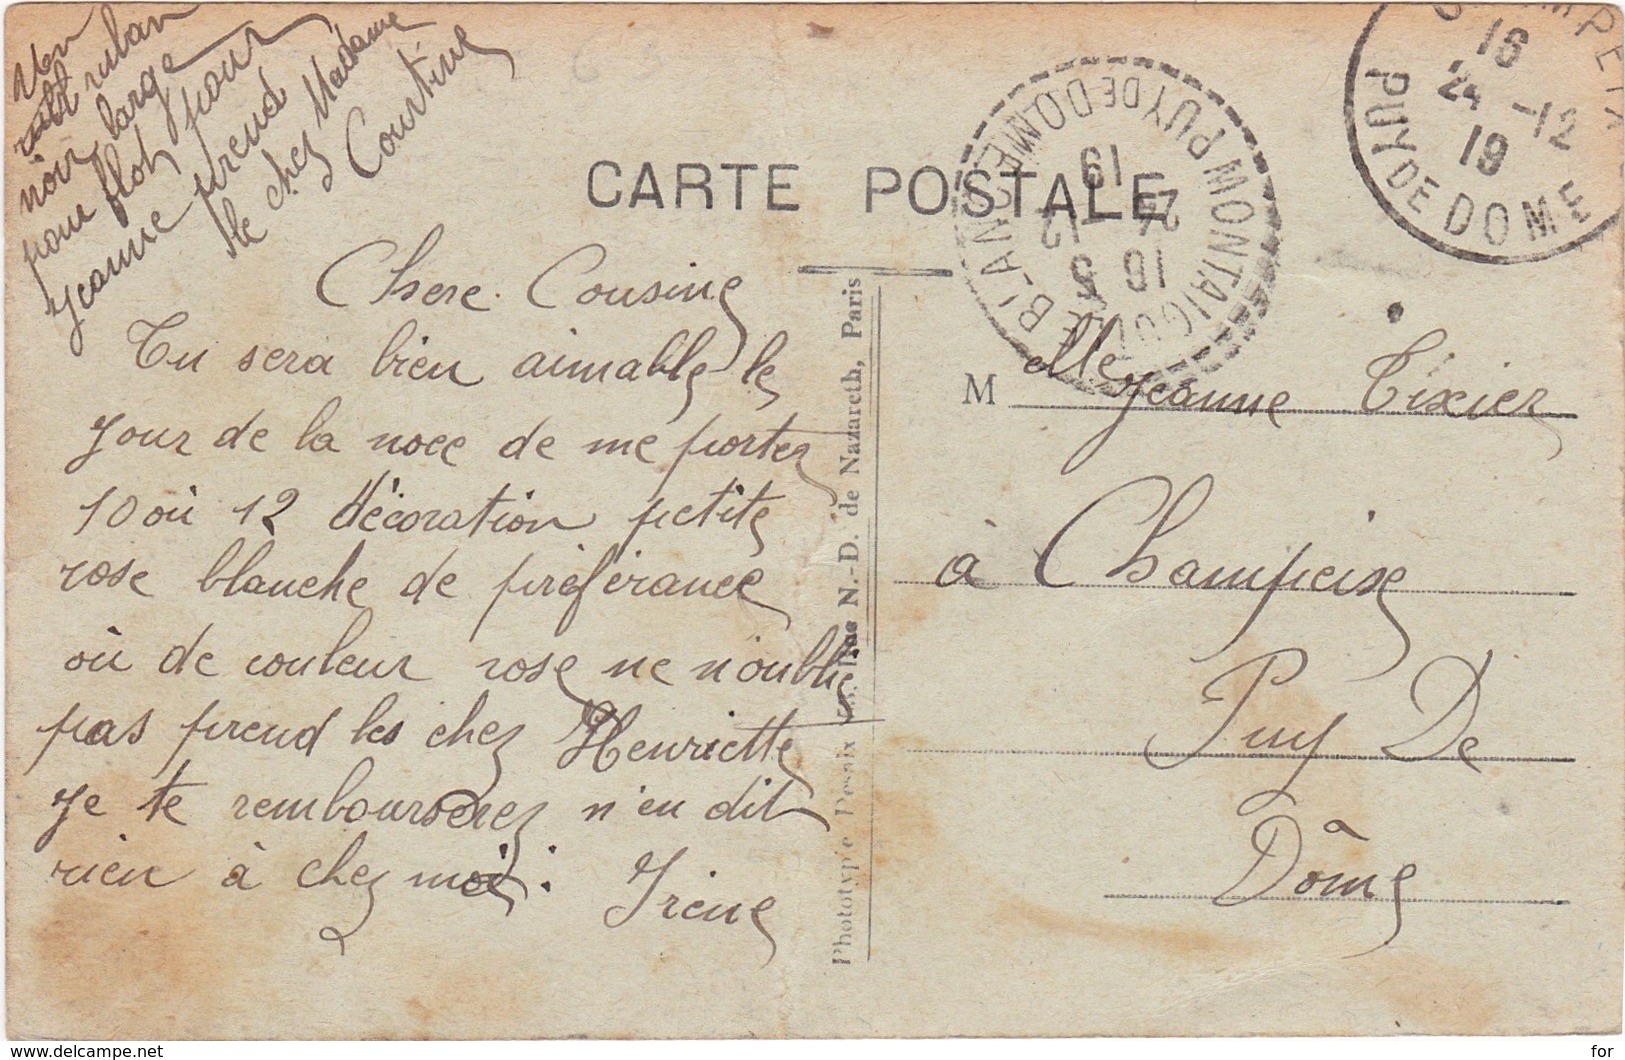 ruban
noir large
pour flot pour
Jeanne prend
le chez Madame
Courtine
CARTE POSTALE
Chere Cousine
Tu sera bien aimable le
jour de la noce de me porter
10 où 12 décoration petite
rose blanche de préférance
où de couleur rose ne n'oublie
pas prend les chez Henriette
Je te rembourserez n'en dit
rien à chez moi.
Irene
Phototypie Desaix
N.-D. de Nazareth, Paris
MONTAIGUT LE BLANC PUY DE DOME
16
24 -12
19
16
24 -12
19
PUY DE DOME
M elle Jeanne Tixier
à Champeix
Puy De
Dôme
delcampe.net
for